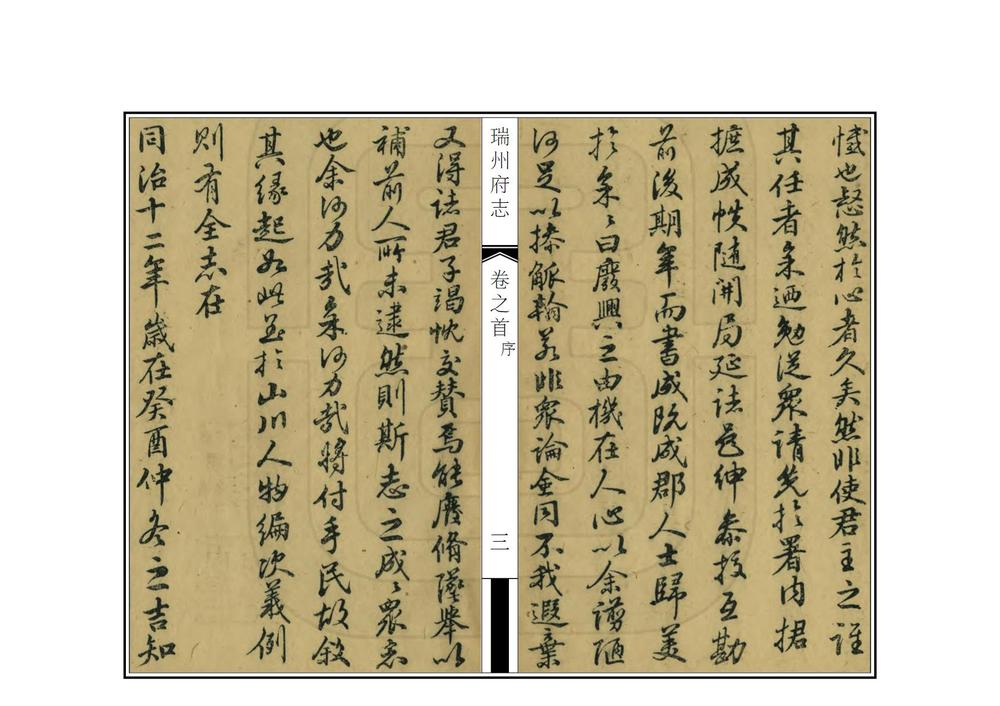 憾也惄然於心者久矣然非使君主之誰
其任者余迺勉從眾請先於署內捃
摭成帙隨開局延諸薦紳參校互勘
前後期年而書成既成郡人士歸美
於余余曰廢興之由機在人心以余謭陋
何足以搽觚翰若非眾論僉同不我遐棄
瑞州府志
卷之首
序
三
又得諸君子竭忱交贊焉能廢脩墜舉以
補前人所未逮然則斯志之成成眾志
也余何力哉余何力哉將付手民故敘
其緣起如此至於山川人物編次義例
則有全志在
同治十二年歲在癸酉仲冬之吉知